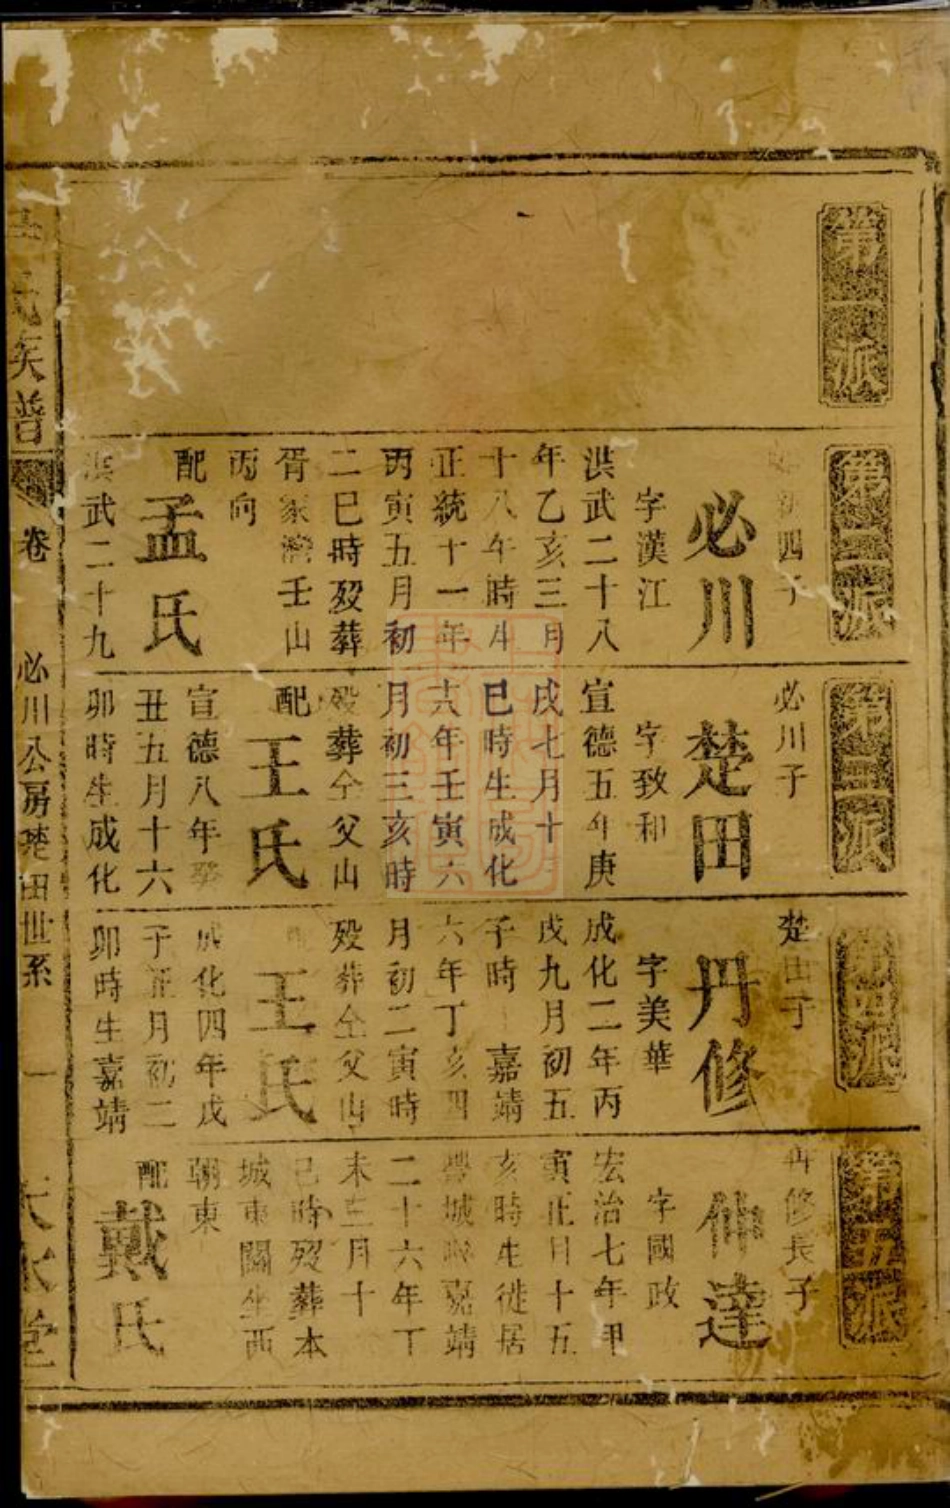 第一派
第二派
四子
必川
字漢江
洪武二十八
年乙亥三月
十八年時生
正統十一年
丙寅五月初
二巳時歿葬
胥家灣壬山
丙向
配
孟氏
洪武二十九
第三派
必川子
楚田
字致和
宣德五年庚
戌七月十
巳時生成化
十六年壬寅六
月初三亥時
歿葬仝父山
配
王氏
宣德八年癸
丑五月十六
卯時生成化
第四派
楚田子
丹修
字美華
成化二年丙
戌九月初五
子時 嘉靖
六年丁亥四
月初二寅時
歿葬仝父山
配
王氏
成化四年戊
子正月初二
卯時生嘉靖
第五派
丹修長子
仲達
字國政
宏治七年甲
寅正月十五
亥時生徙居
城 嘉靖
二十六年丁
未三月十
己時歿葬本
城東關坐西
朝東
配
戴氏
氏族普
卷
必川公房楚田世系
一
天水堂